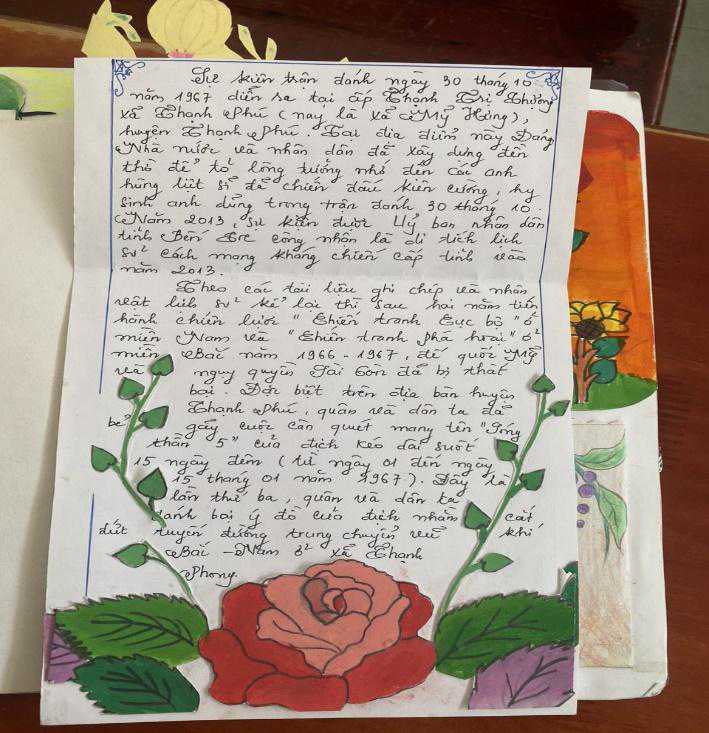 Sự kiện trận đánh ngày 30 tháng 10
năm 1967 diễn ra tại ấp Thạnh Trị Thượng
xã Thạnh Phú (nay là xã Mỹ Hưng),
huyện Thạnh Phú. Tại địa điểm này Đảng
Nhà nước và nhân dân đã xây dựng đền
thờ để tỏ lòng tưởng nhớ đến các anh
hùng liệt sĩ đã chiến đấu kiên cường, hy
sinh anh dũng trong trận đánh 30 tháng 10.
Năm 2013, sự kiện được Uỷ ban nhân dân
tỉnh Bến Tre công nhận là di tích lịch
sử cách mạng kháng chiến cấp tỉnh vào
năm 2013.
Theo các tài liệu ghi chép và nhân
vật lịch sử kể lại thì sau hai năm tiến
hành chiến lược "Chiến tranh Cục bộ" ở
miền Nam và "Chiến tranh phá hoại" ở
miền Bắc năm 1966 - 1967, đế quốc Mỹ
và nguỵ quyền Sài Gòn đã bị thất
bại. Đặc biệt trên địa bàn huyện
Thạnh Phú, quân và dân ta đã
bẻ gãy cuộc càn quét mang tên "Sóng
thần 5" của địch kéo dài suốt
15 ngày đêm (từ ngày 01 đến ngày
15 tháng 01 năm 1967). Đây là
lần thứ ba, quân và dân ta
đánh bại ý đồ của địch nhằm cắt
đứt tuyến đường trung chuyển vũ khí
Bắc - Nam ở xã Thạnh
Phong.